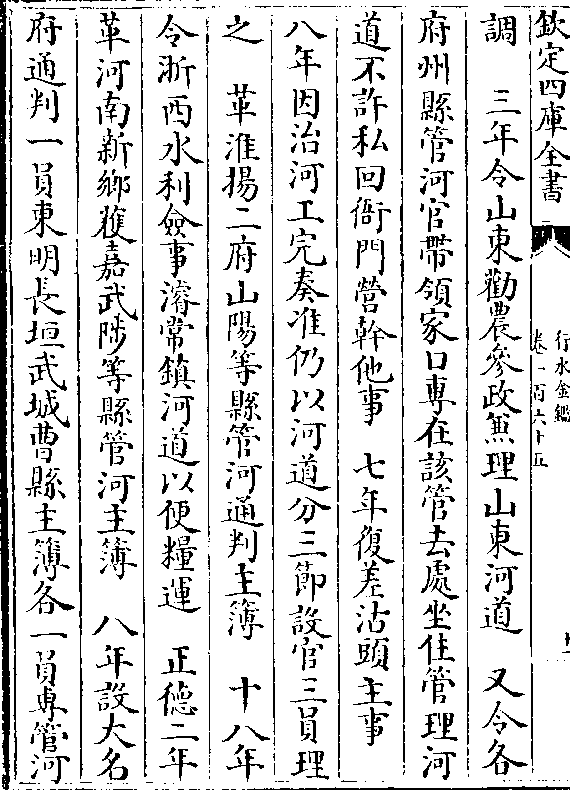 欽定四庫全書
行水金鑑
卷一百六十五
調　三年令山東勸農參政兼理山東河道　又令各
府州縣管河官帶領家口專在該管去處坐住管理河
道不許私回衙門營幹他事　七年復差沽頭主事
八年因治河工完奏准仍以河道分三節設官三員理
之　革淮揚二府山陽等縣管河通判主簿　十八年
令浙西水利僉事濬常鎮河道以便糧運　正德二年
革河南新鄉獲嘉武陟等縣管河主簿　八年設大名
府通判一員東明長垣武城曹縣主簿各一員專管河